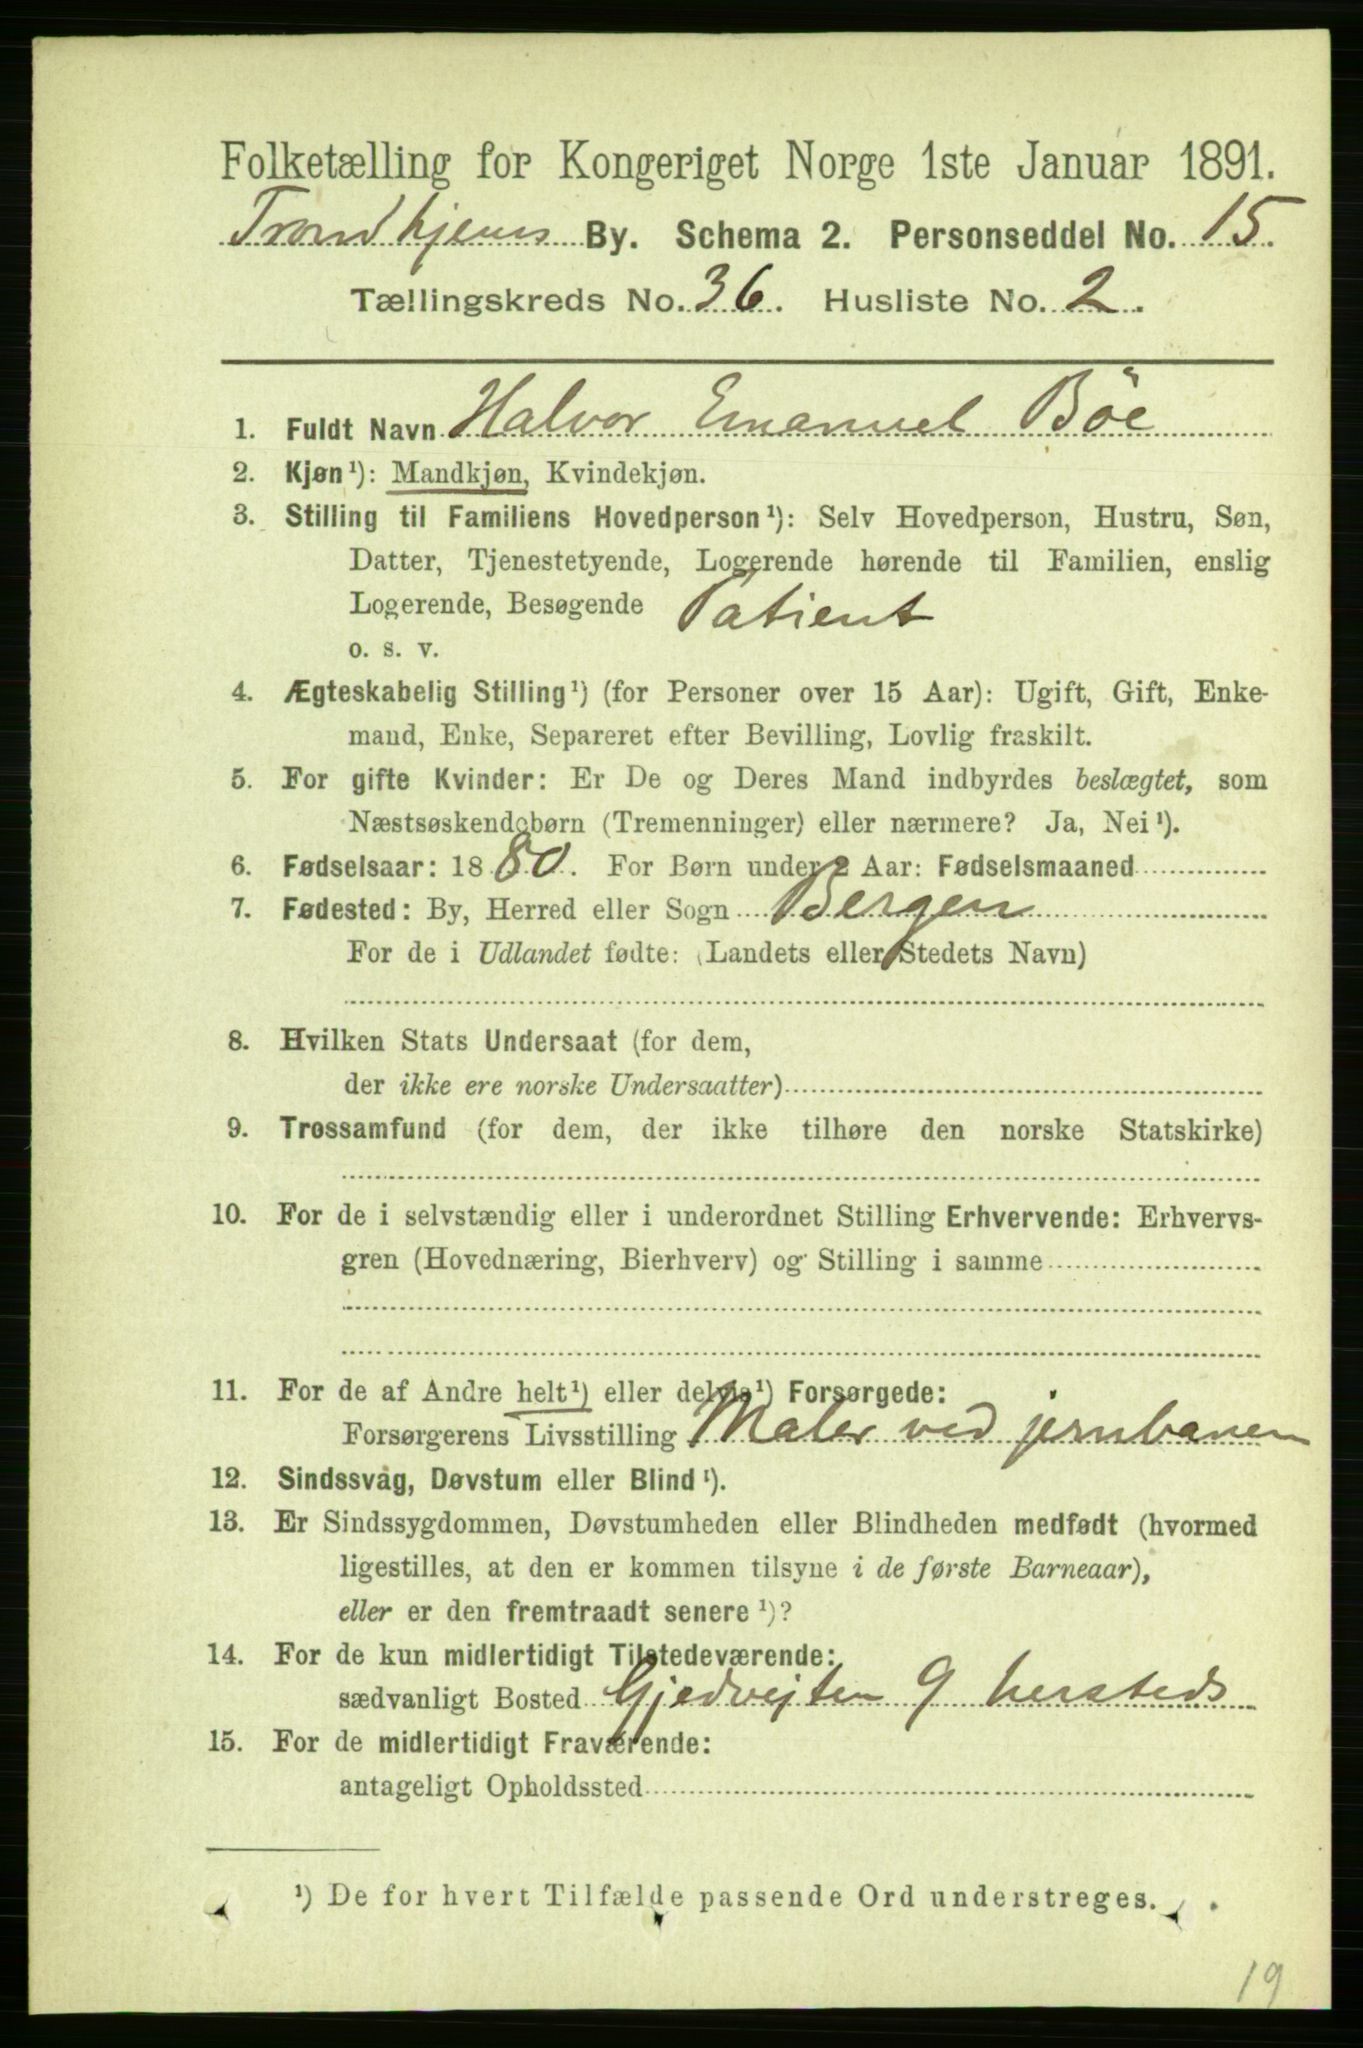 Folketælling for Kongeriget Norge 1ste Januar 1891.
Trondhjems By. Schema 2. Personseddel No. 15.
Tællingskreds No. 36. Husliste No. 2.
1. Fuldt Navn Halvor Emanuel Böe
2. Kjøn¹): Mandkjøn, Kvindekjøn.
3. Stilling til Familiens Hovedperson¹): Selv Hovedperson, Hustru, Søn,
Datter, Tjenestetyende, Logerende hørende til Familien, enslig
Logerende, Besøgende Patient
o. s. v.
4. Ægteskabelig Stilling¹) (for Personer over 15 Aar): Ugift, Gift, Enke-
mand, Enke, Separeret efter Bevilling, Lovlig fraskilt.
5. For gifte Kvinder: Er De og Deres Mand indbyrdes beslægtet, som
Næstsøskendebørn (Tremenninger) eller nærmere? Ja, Nei¹).
6. Fødselsaar: 1880. For Børn under 2 Aar: Fødselsmaaned
7. Fødested: By, Herred eller Sogn Bergen
For de i Udlandet fødte: (Landets eller Stedets Navn)
8. Hvilken Stats Undersaat (for dem,
der ikke ere norske Undersaatter)
9. Trossamfund (for dem, der ikke tilhøre den norske Statskirke)
10. For de i selvstændig eller i underordnet Stilling Erhvervende: Erhvervs-
gren (Hovednæring, Bierhverv) og Stilling i samme
11. For de af Andre helt¹) eller delvis¹) Forsørgede:
Forsørgerens Livsstilling Maler ved jernbanen
12. Sindssvag, Døvstum eller Blind¹).
13. Er Sindssygdommen, Døvstumheden eller Blindheden medfødt (hvormed
ligestilles, at den er kommen tilsyne i de første Barneaar),
eller er den fremtraadt senere¹)?
14. For de kun midlertidigt Tilstedeværende:
sædvanligt Bosted Gjedvejten 9 hersteds
15. For de midlertidigt Fraværende:
antageligt Opholdssted
¹) De for hvert Tilfælde passende Ord understreges.
19